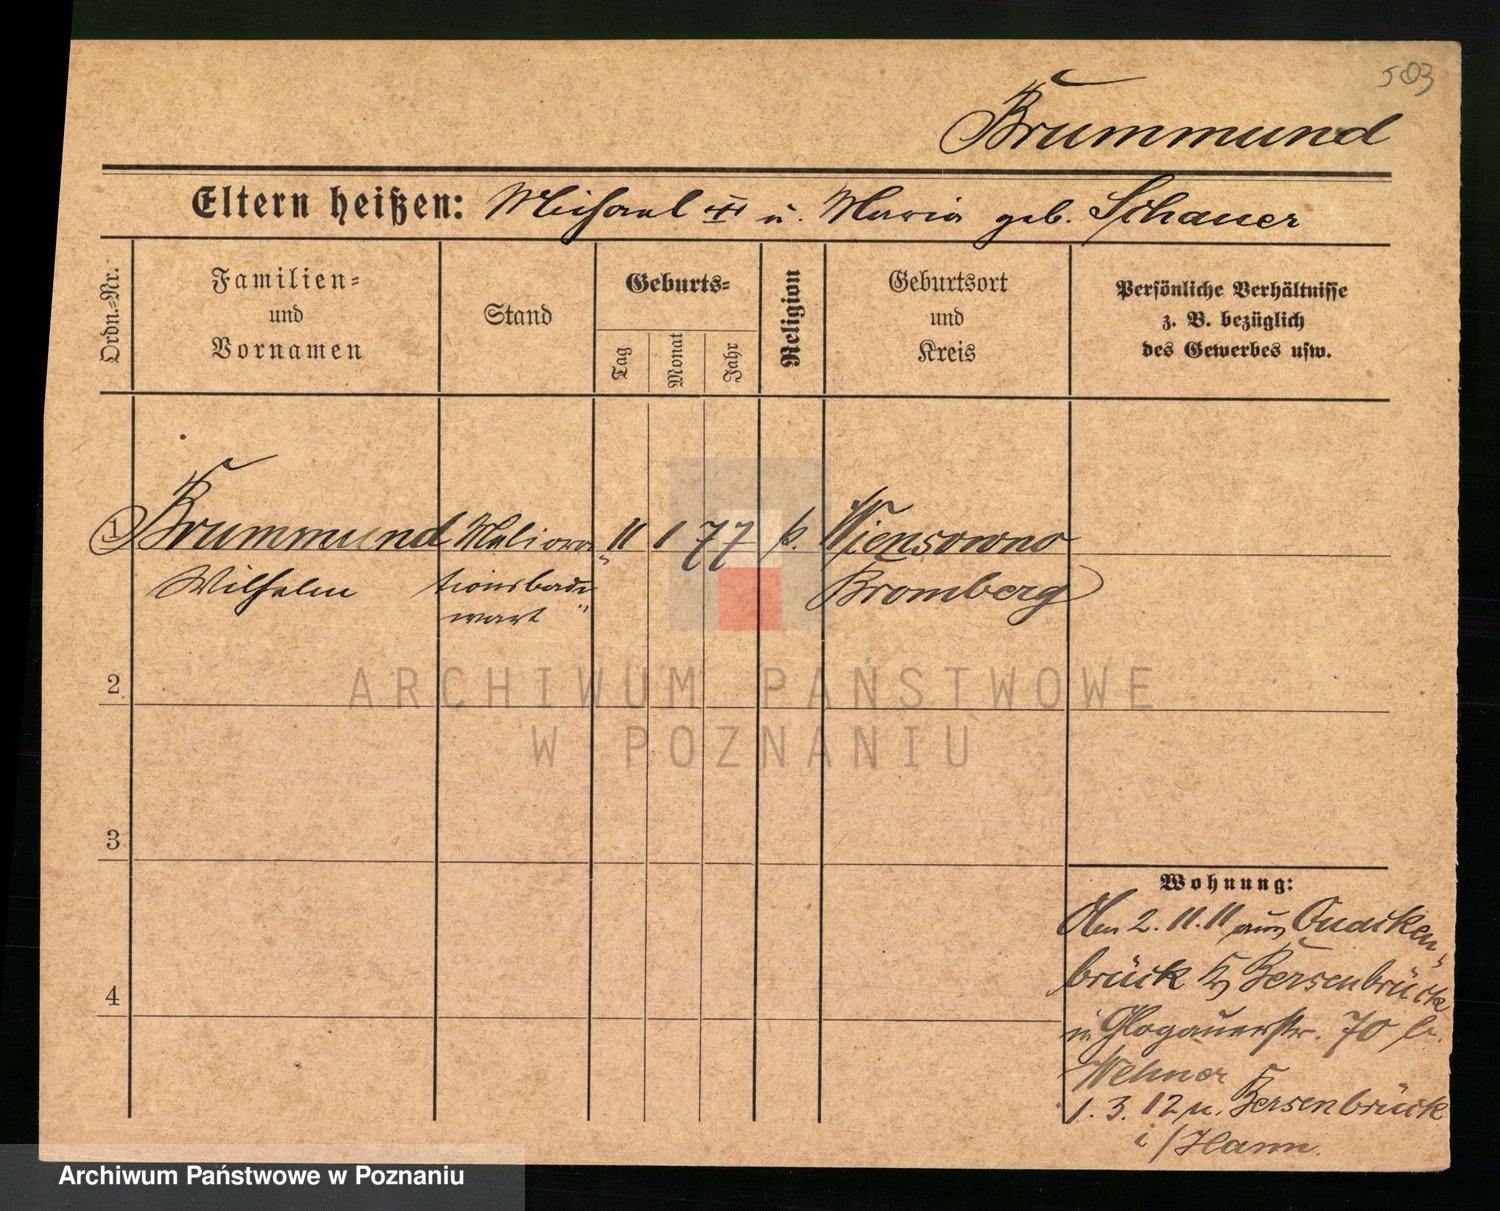 503
Brummund
Eltern heißen: Michael ☩ u. Maria geb. Schauer
Ordn.-Nr.
Familien-
und
Vornamen
Stand
Geburts-
Tag
Monat
Jahr
Religion
Geburtsort
und
Kreis
Persönliche Verhältnisse
z. B. bezüglich
des Gewerbes usw.
1 Brummund Meliora- 11 1 77 k. Wiensowno
Wilhelm tionsbau- Bromberg
wart
2
3
4
Wohnung:
Am 2.11.11 aus Quacken-
brück Kr Bersenbrück
in Glogauerstr. 70 b.
Wehner
1.3.12 n. Bersenbrück
i/Hann.
ARCHIWUM PAŃSTWOWE
W POZNANIU
Archiwum Państwowe w Poznaniu